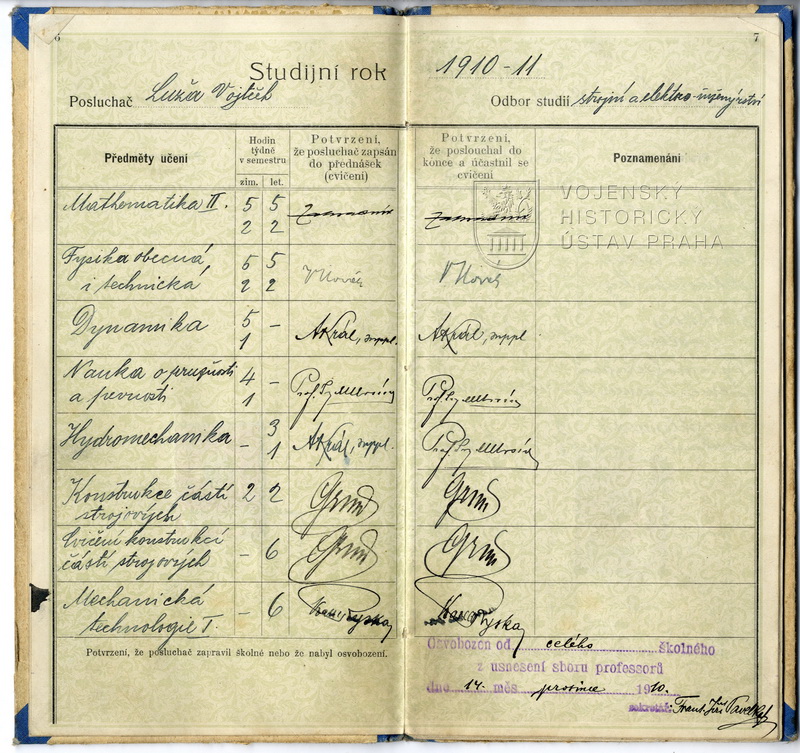 6
7
Studijní rok 1910-11
Posluchač Luža Vojtěch
Odbor studií strojní a elektro-inženýrství
Předměty učení
Hodin týdně v semestru
zim. let.
Potvrzení,
že posluchač zapsán
do přednášek
(cvičení)
Potvrzení,
že poslouchal do
konce a účastnil se
cvičení
Poznamenání
Mathematika II. 5 5
2 2
Fysika obecná 5 5
i technická 2 2 VNovák VNovák
Dynamika 5 -
1 AKrál, suppl. AKrál, suppl
Nauka o pružnosti 4 -
a pevnosti 1
Hydromechanika - 3
1 AKrál, suppl.
Konstrukce částí 2 2
strojových
Cvičení konstrukcí
částí strojových - 6
Mechanická - 6
technologie I.
VOJENSKÝ
HISTORICKÝ
ÚSTAV PRAHA
Potvrzení, že posluchač zapravil školné nebo že nabyl osvobození.
Osvobozen od celého školného
z usnesení sboru professorů
dne 14. měs. prosince 1910.
sekretář: Frant. Jiří Pavelka